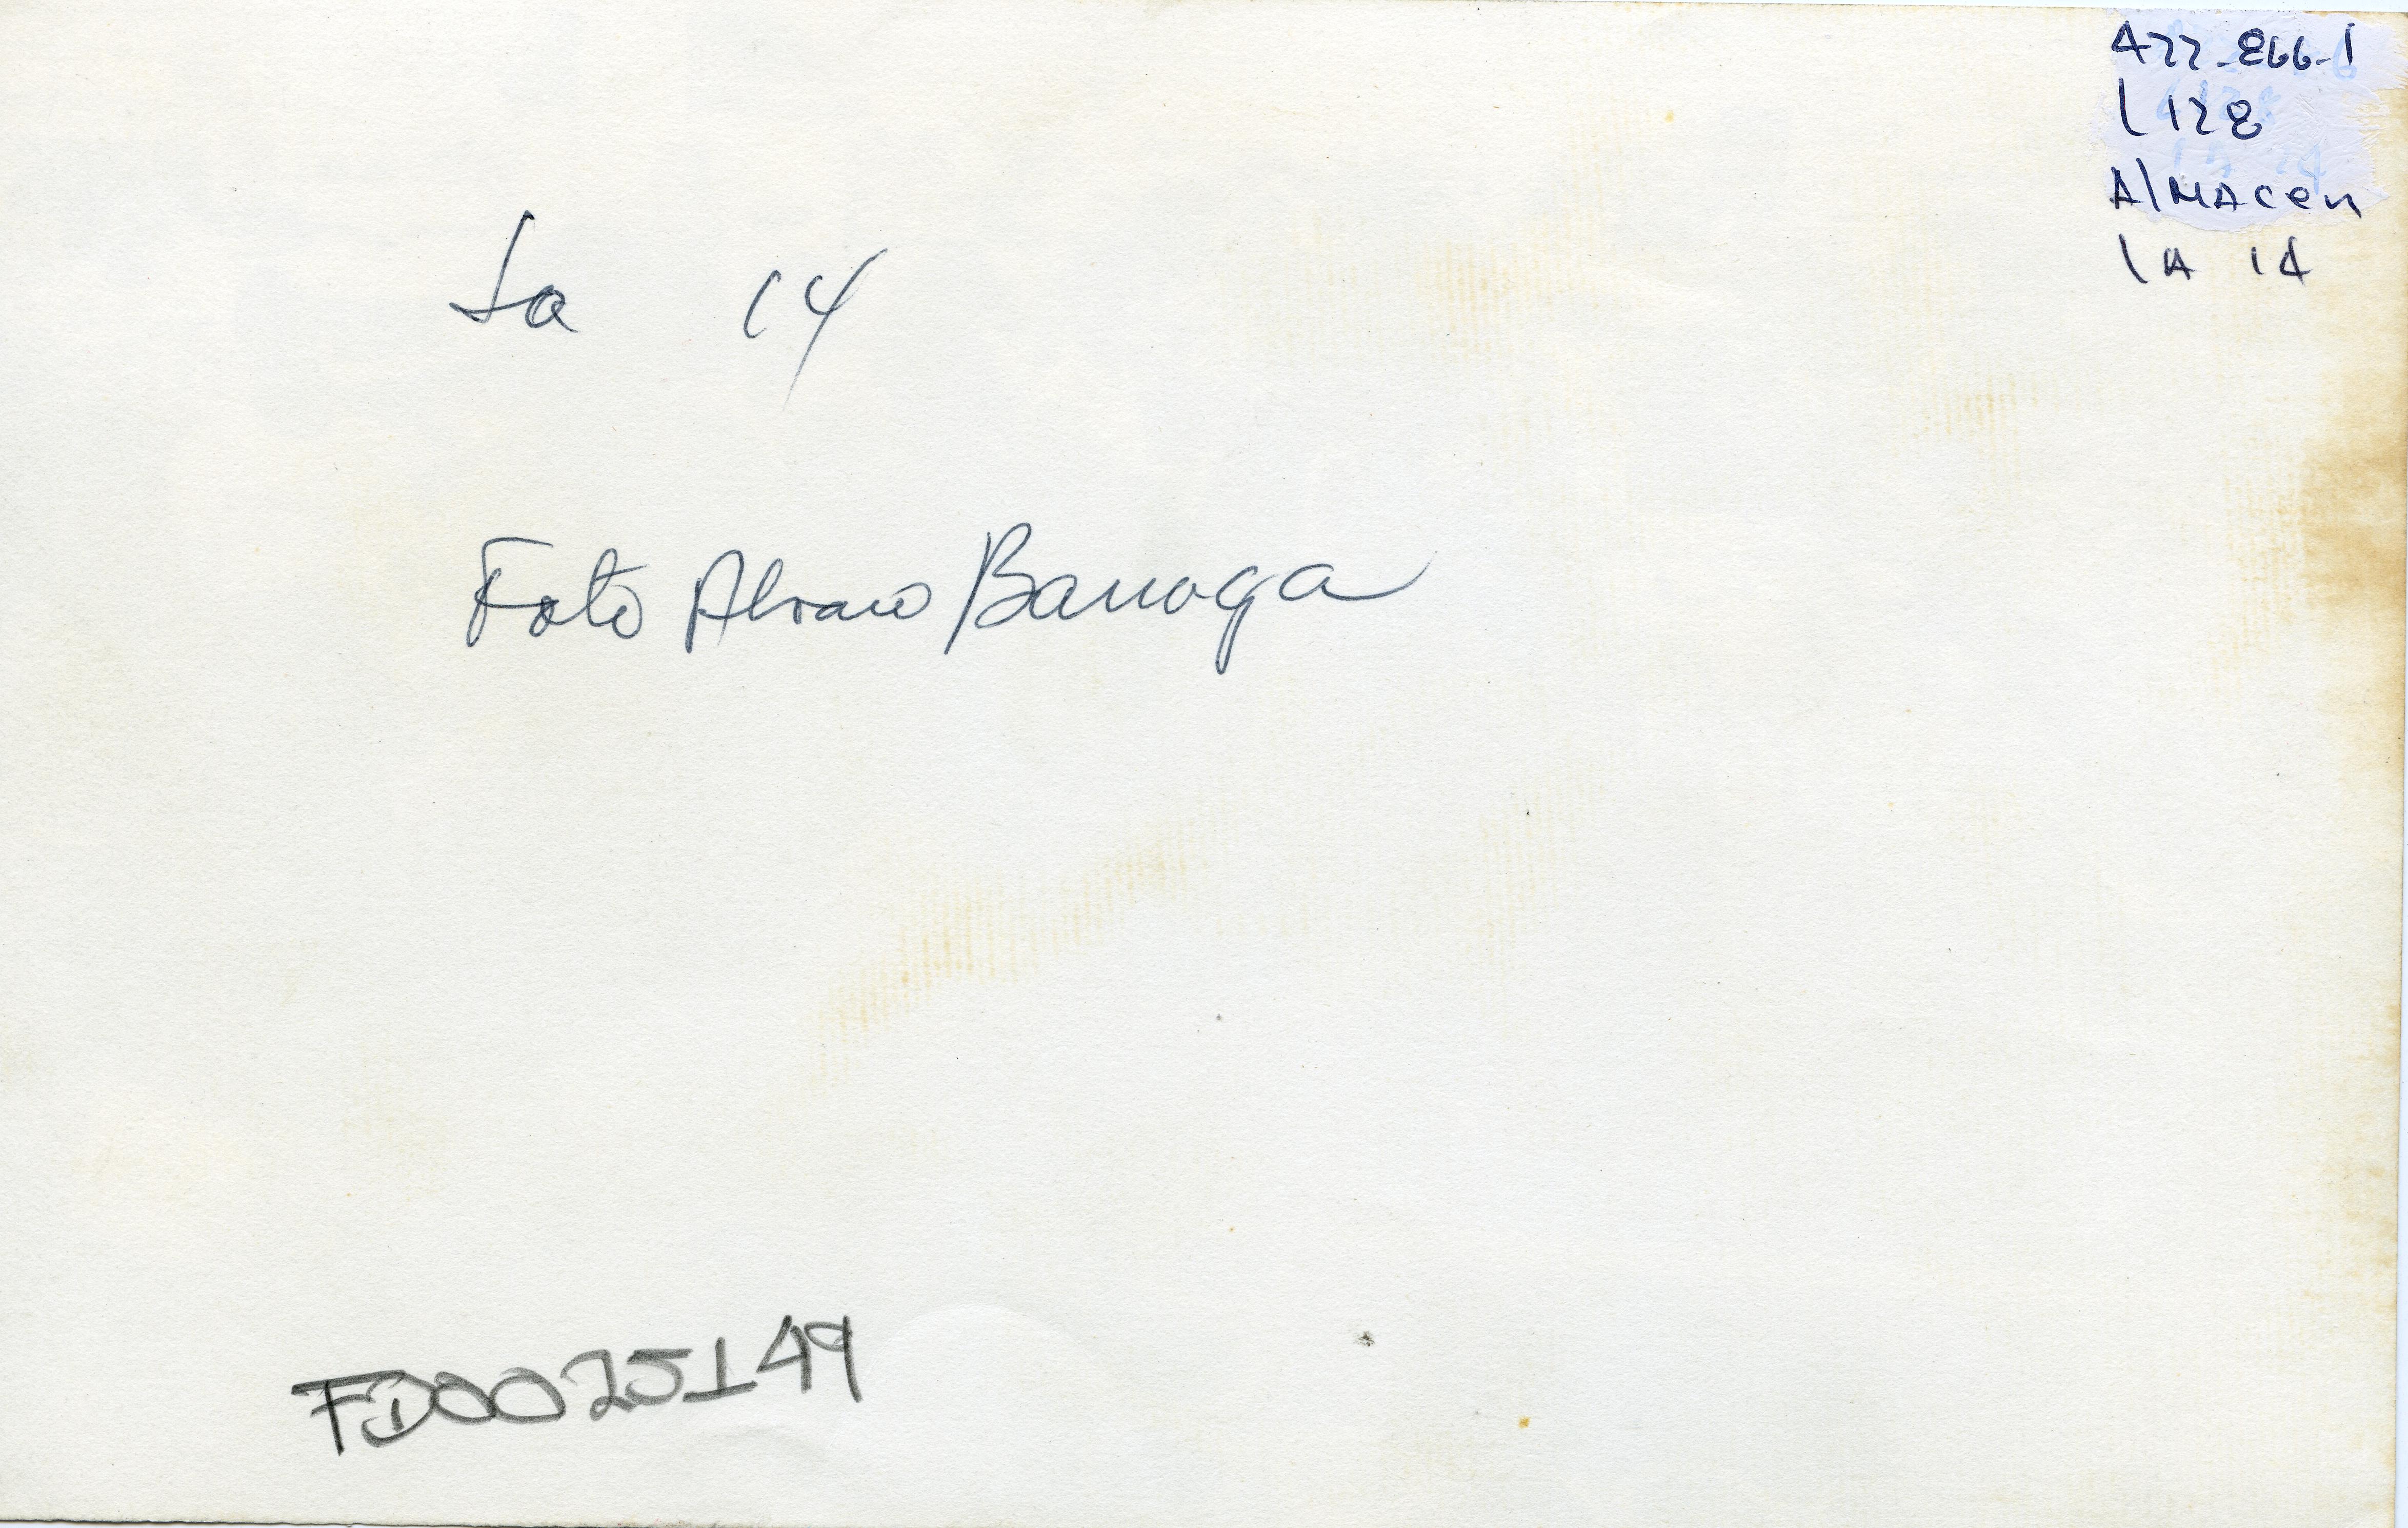 477-866-1
L 128
AlMAcen
lA 14
La 14
Foto Alvaro Barroga
FD0025149